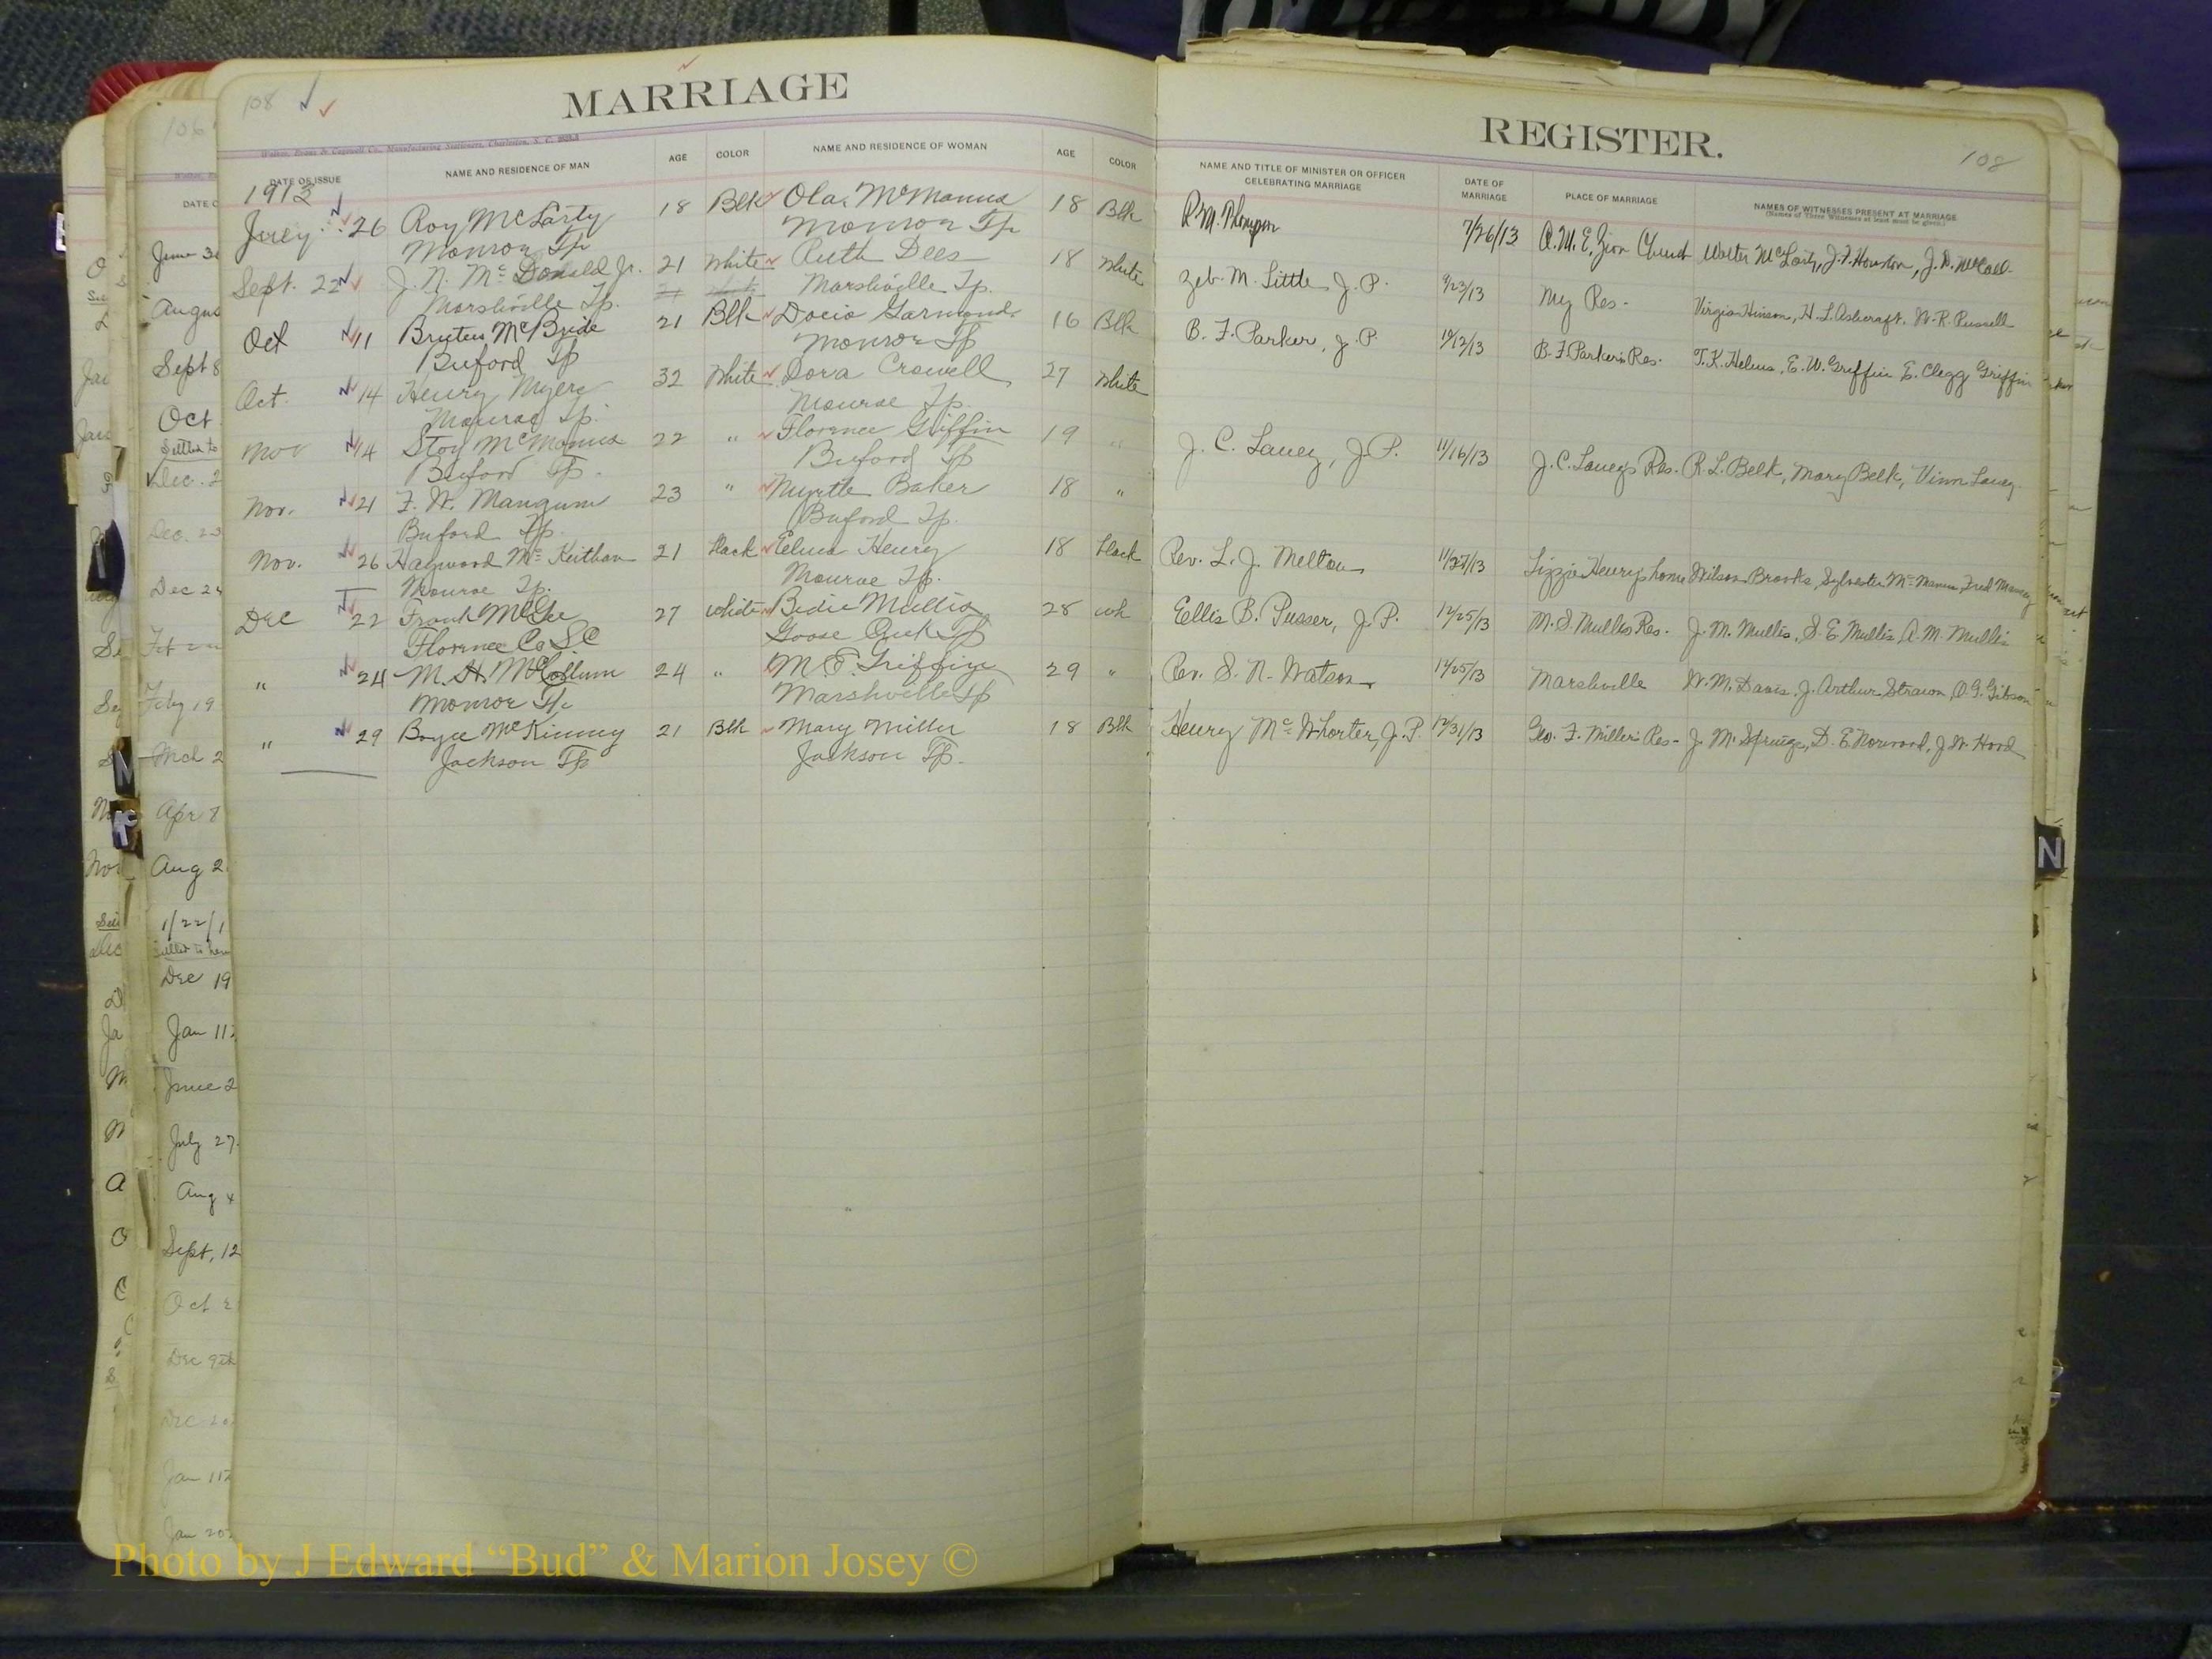 108
MARRIAGE
Walker, Evans & Cogswell Co., Manufacturing Stationers, Charleston, S. C.
DATE OF ISSUE NAME AND RESIDENCE OF MAN AGE COLOR NAME AND RESIDENCE OF WOMAN AGE COLOR
1913
July 26 Roy McLarty 18 Blk Ola McManus 18 Blk
Monroe Tp Monroe Tp
Sept. 22 J. N. McDonald Jr. 21 White Ruth Dees 18 White
Marshville Tp. Marshville Tp.
Oct 11 Brutus McBride 21 Blk Docia Garmond 16 Blk
Buford Tp Monroe Tp
Oct. 14 Henry Myers 32 White Dora Crowell 27 White
Monroe Tp. Monroe Tp.
Nov 14 Stoy McManus 22 " Florence Griffin 19 "
Buford Tp. Buford Tp
Nov. 21 F. W. Mangum 23 " Myrtle Baker 18 "
Buford Tp. Buford Tp.
Nov. 26 Haywood McKeithan 21 black Henry 18 black
Monroe Tp. Monroe Tp.
Dec 22 Frank McGee 27 white Bedie Mullis 28 wh
Florence Co S C Goose Creek Tp
" 24 M. H. McCollum 24 " M. E. Griffin 29 "
Monroe Tp. Marshville Tp
" 29 Boyce McKinney 21 Blk Mary Miller 18 Blk
Jackson Tp Jackson Tp.
REGISTER.
108
NAME AND TITLE OF MINISTER OR OFFICER CELEBRATING MARRIAGE DATE OF MARRIAGE PLACE OF MARRIAGE NAMES OF WITNESSES PRESENT AT MARRIAGE
(Names of Three Witnesses at least must be given.)
R. M. Thompson 7/26/13 A. M. E. Zion Church Walter McLarty, J. F. Houston, J. D. McCall
Zeb. M. Little, J. P. 9/23/13 My Res- Virgia Hinson, H. L. Ashcraft, W. R. Russell
B. F. Parker, J. P. 10/12/13 B. F. Parker's Res. T. K. Helms, E. W. Griffin E. Clegg Griffin
J. C. Laney, J. P. 11/16/13 J. C. Laney's Res. R. L. Belk, Mary Belk, Laney
Rev. L. J. Melton 11/27/13 Lizzie Henry's home Wilson Brooks, Sylvester McManus, Fred Massey
Ellis B. Pusser, J. P. 12/25/13 M. S. Mullis Res. J. M. Mullis, S. E. Mullis A. M. Mullis
Rev. S. N. Watson 12/25/13 Marshville W. M. Davis, J. Arthur Strawn, O. G. Gibson
Henry McWhorter, J. P. 12/31/13 Geo. F. Miller's Res- D. E. Norwood, J. W. Hood
106
DATE O
June 30
Augus
Sept 8
Oct
Settled to
Dec. 2
Dec. 23
Dec 24
Feb
Feby 19
Mch 2
Apr 8
Aug 2
1/22/1
Dec 19
Jan 11
June 2
July 27
Aug 4
Sept, 12
Oct 2
Dec 9th
Dec 20
Jan 11
Jan 20
N
Mc
N
Photo by J Edward “Bud” & Marion Josey ©